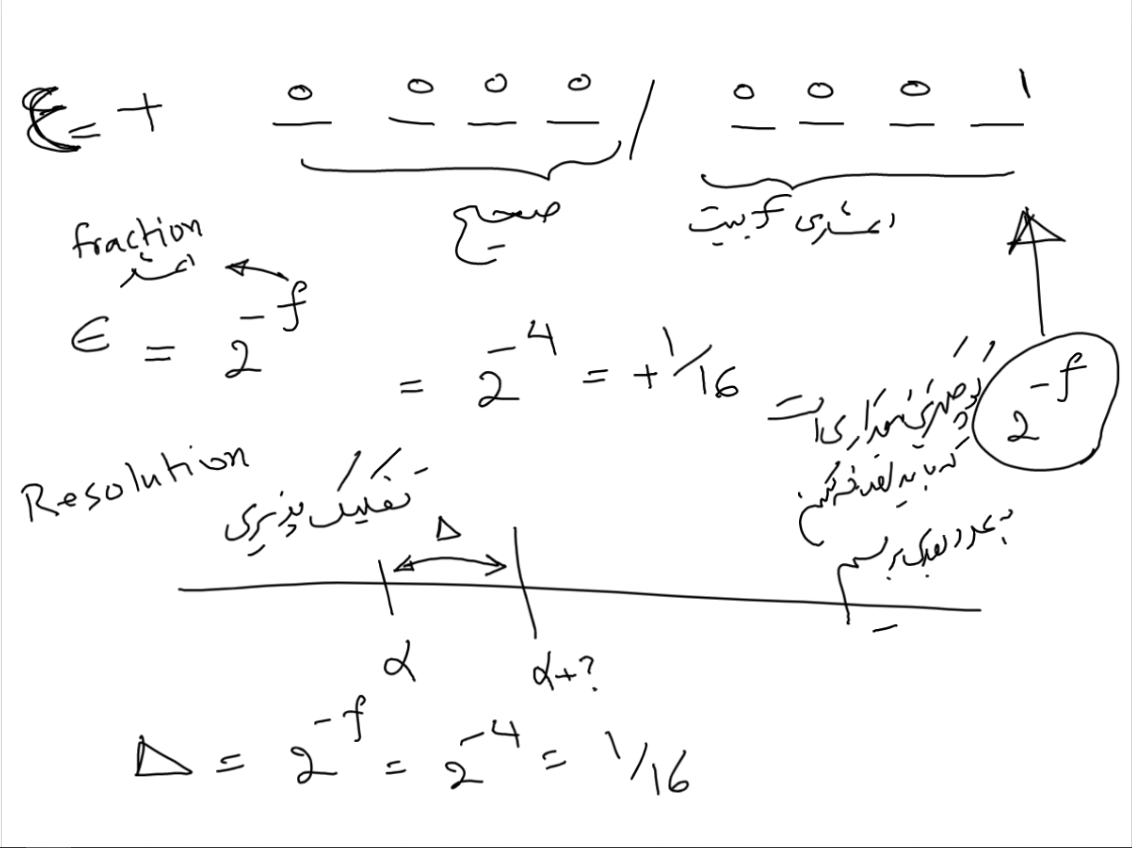 ε = + 0 0 0 0 / 0 0 0 1
صحیح
اعشاری f بیت
fraction
اعشار
ε = 2^-f = 2^-4 = + 1/16
2^-f
کوچکترین مقداری است
که باید
به عدد بعدی برسیم
Resolution
تفکیک پذیری
Δ
α
α+?
Δ = 2^-f = 2^-4 = 1/16